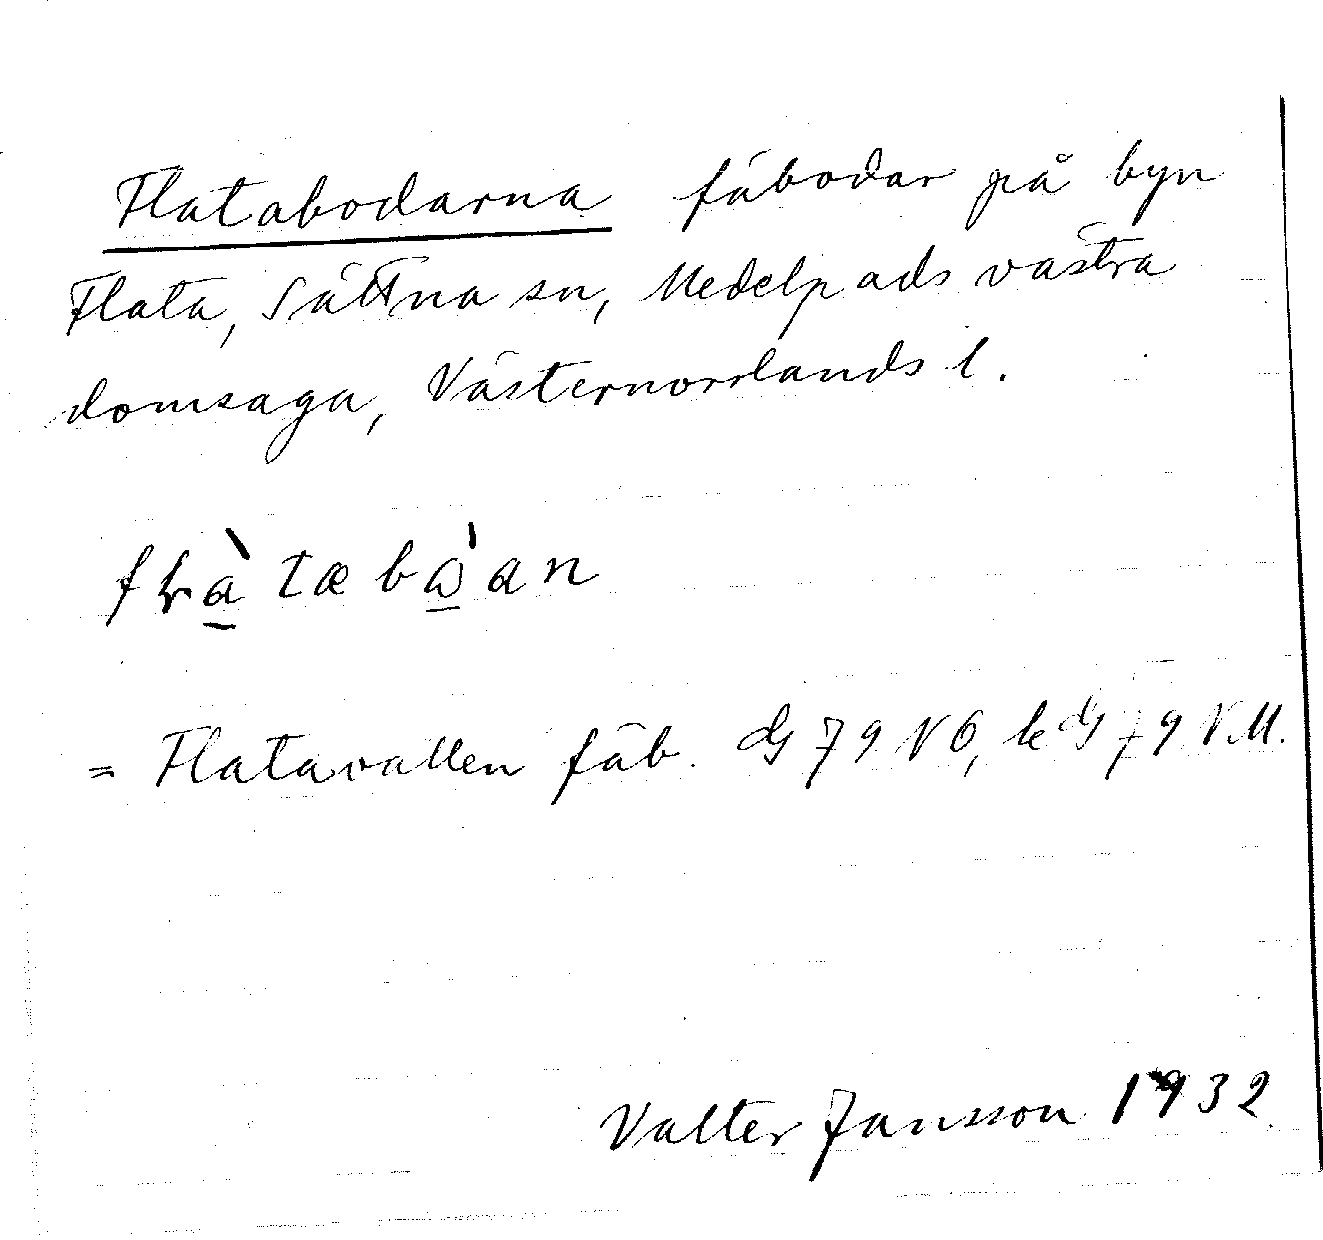 Flatabodarna fäbodar på byn
Flata, Sättna sn, Medelpads västra
domsaga, Västernorrlands l.
= Flatavallen fäb.
Valter Jansson 1932